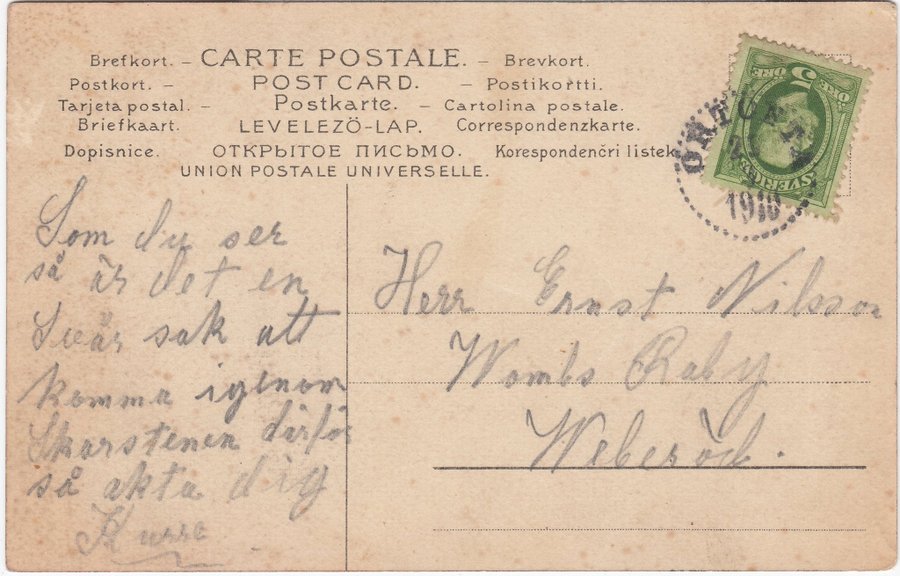 Brefkort. – CARTE POSTALE. – Brevkort.
Postkort. – POST CARD. – Postikortti.
Tarjeta postal. – Postkarte. – Cartolina postale.
Briefkaart. LEVELEZÖ-LAP. Correspondenzkarte.
Dopisnice. ОТКРЫТОЕ ПИСЬМО. Korespondenčri listek
UNION POSTALE UNIVERSELLE.
5
ÖRE
SVERIGE
1910
Som du ser
så är det en
Svår sak att
komma igenom
Skorstenen därför
så akta dig
Kurre
Herr Ernst Nilsson
Wombs Raby
Weberöd.